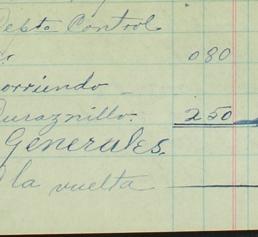 Depto Control
080
corriendo
Duraznillo. 250
Generales.
a la vuelta